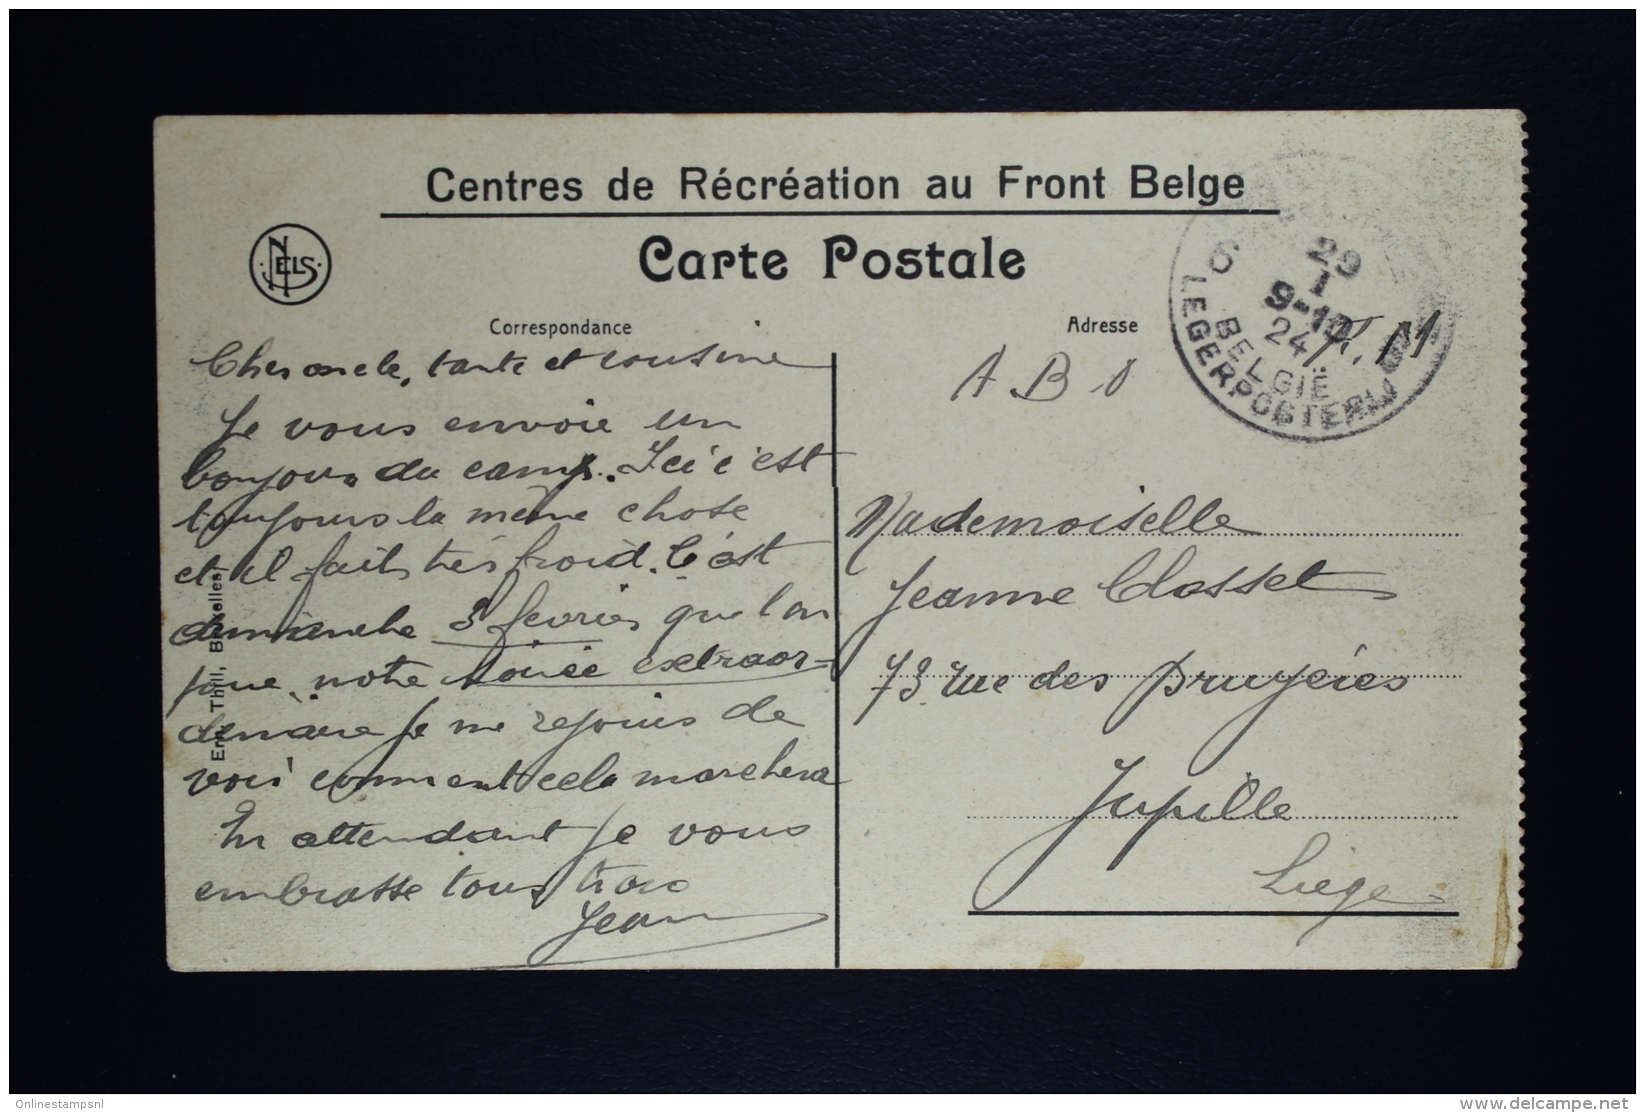 Centres de Récréation au Front Belge
NELS
Carte Postale
Correspondance
Adresse
29
1
9-10
24
BELGIË
LEGERPOSTERIJ
6
F. M
A. B. O
Cher oncle, tante et cousine
Je vous envoie un
bonjour du camp. Ici c'est
toujours la même chose
et il fait très froid. C'est
dimanche 3 fevrier que l'on
joue notre soirée extraor=
dinaire je me rejouis de
voir comment cela marchera
En attendant je vous
embrasse tous trois
Jean
Mademoiselle
Jeanne Closset
73 rue des Bruyéres
Jupille
Liège
Ern. Thill, Bruxelles
Onlinestampsnl
www.delcampe.net